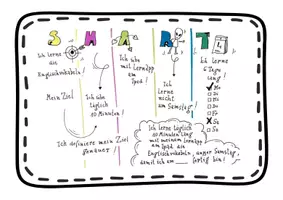 SMART
Ich lerne
die
Englischvokabeln!
Mein Ziel
Ich definiere mein Ziel
genauer!
Ich übe
täglich
10 Minuten!
Ich übe
mit LernApp
am Ipad!
Ich
lerne
nicht
am Samstag!
Ich lerne
6 Tage
lang!
Mo
Di
Mi
Do
Fr
Sa
So
Ich lerne täglich
10 Minuten lang
mit meinem LernApp
am Ipad die
Englischvokabeln, außer Samstag,
damit ich am fertig bin!